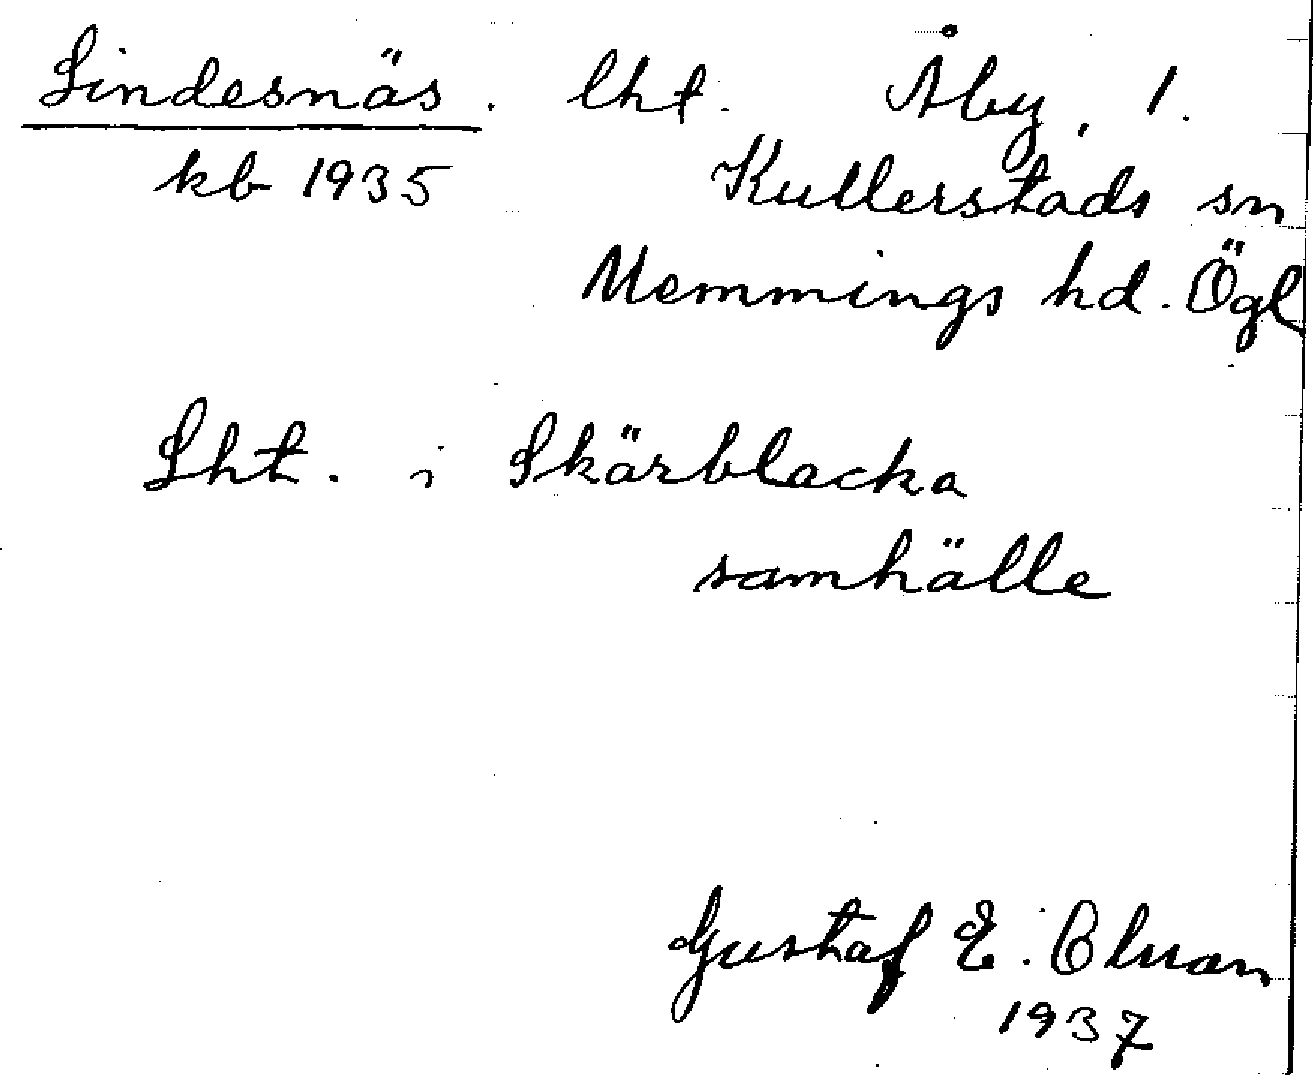 Lindesnäs. lht. Åby, 1.
kb 1935 Kullerstads sn
Memmings hd. Ögl
Lht. i Skärblacka
samhälle
Gustaf E.
1937